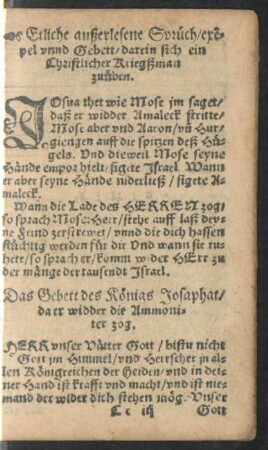 Etliche außerlesene Sprüch/exē-
pel vnnd Gebett/darein sich ein
Christlicher Kriegßman
zuüben.
JOsua thet wie Mose jm saget/
daß er widder Amaleck stritte/
Mose aber vnd Aaron/vñ Hur-
giengen auff die spitzen deß Hü-
gels. Vnd dieweil Mose seyne
Hände empor hielt/sigete Israel. Wann
er aber seyne Hände niderließ/sigete A-
maleck.
Wann die Lade des HERREN zog/
so sprach Mose: Herr/stehe auff laß dey-
ne Feind zerstrewet/vnnd die dich hassen
flüchtig werden für dir Vnd wann sie ru-
hete/so sprach er/komm wider HErr zu
der mänge der tausendt Israel.
Das Gebett des Königs Josaphat/
da er widder die Ammoni-
ter zog.
HERR vnser Vätter Gott/bistu nicht
Gott jm Himmel/vnd Herrscher jn al-
len Königreichen der Heiden/vnd in dei-
ner Hand ist krafft vnd macht/vnd ist nie-
mand der wider dich stehen mög. Vnser
Cc iij Gott